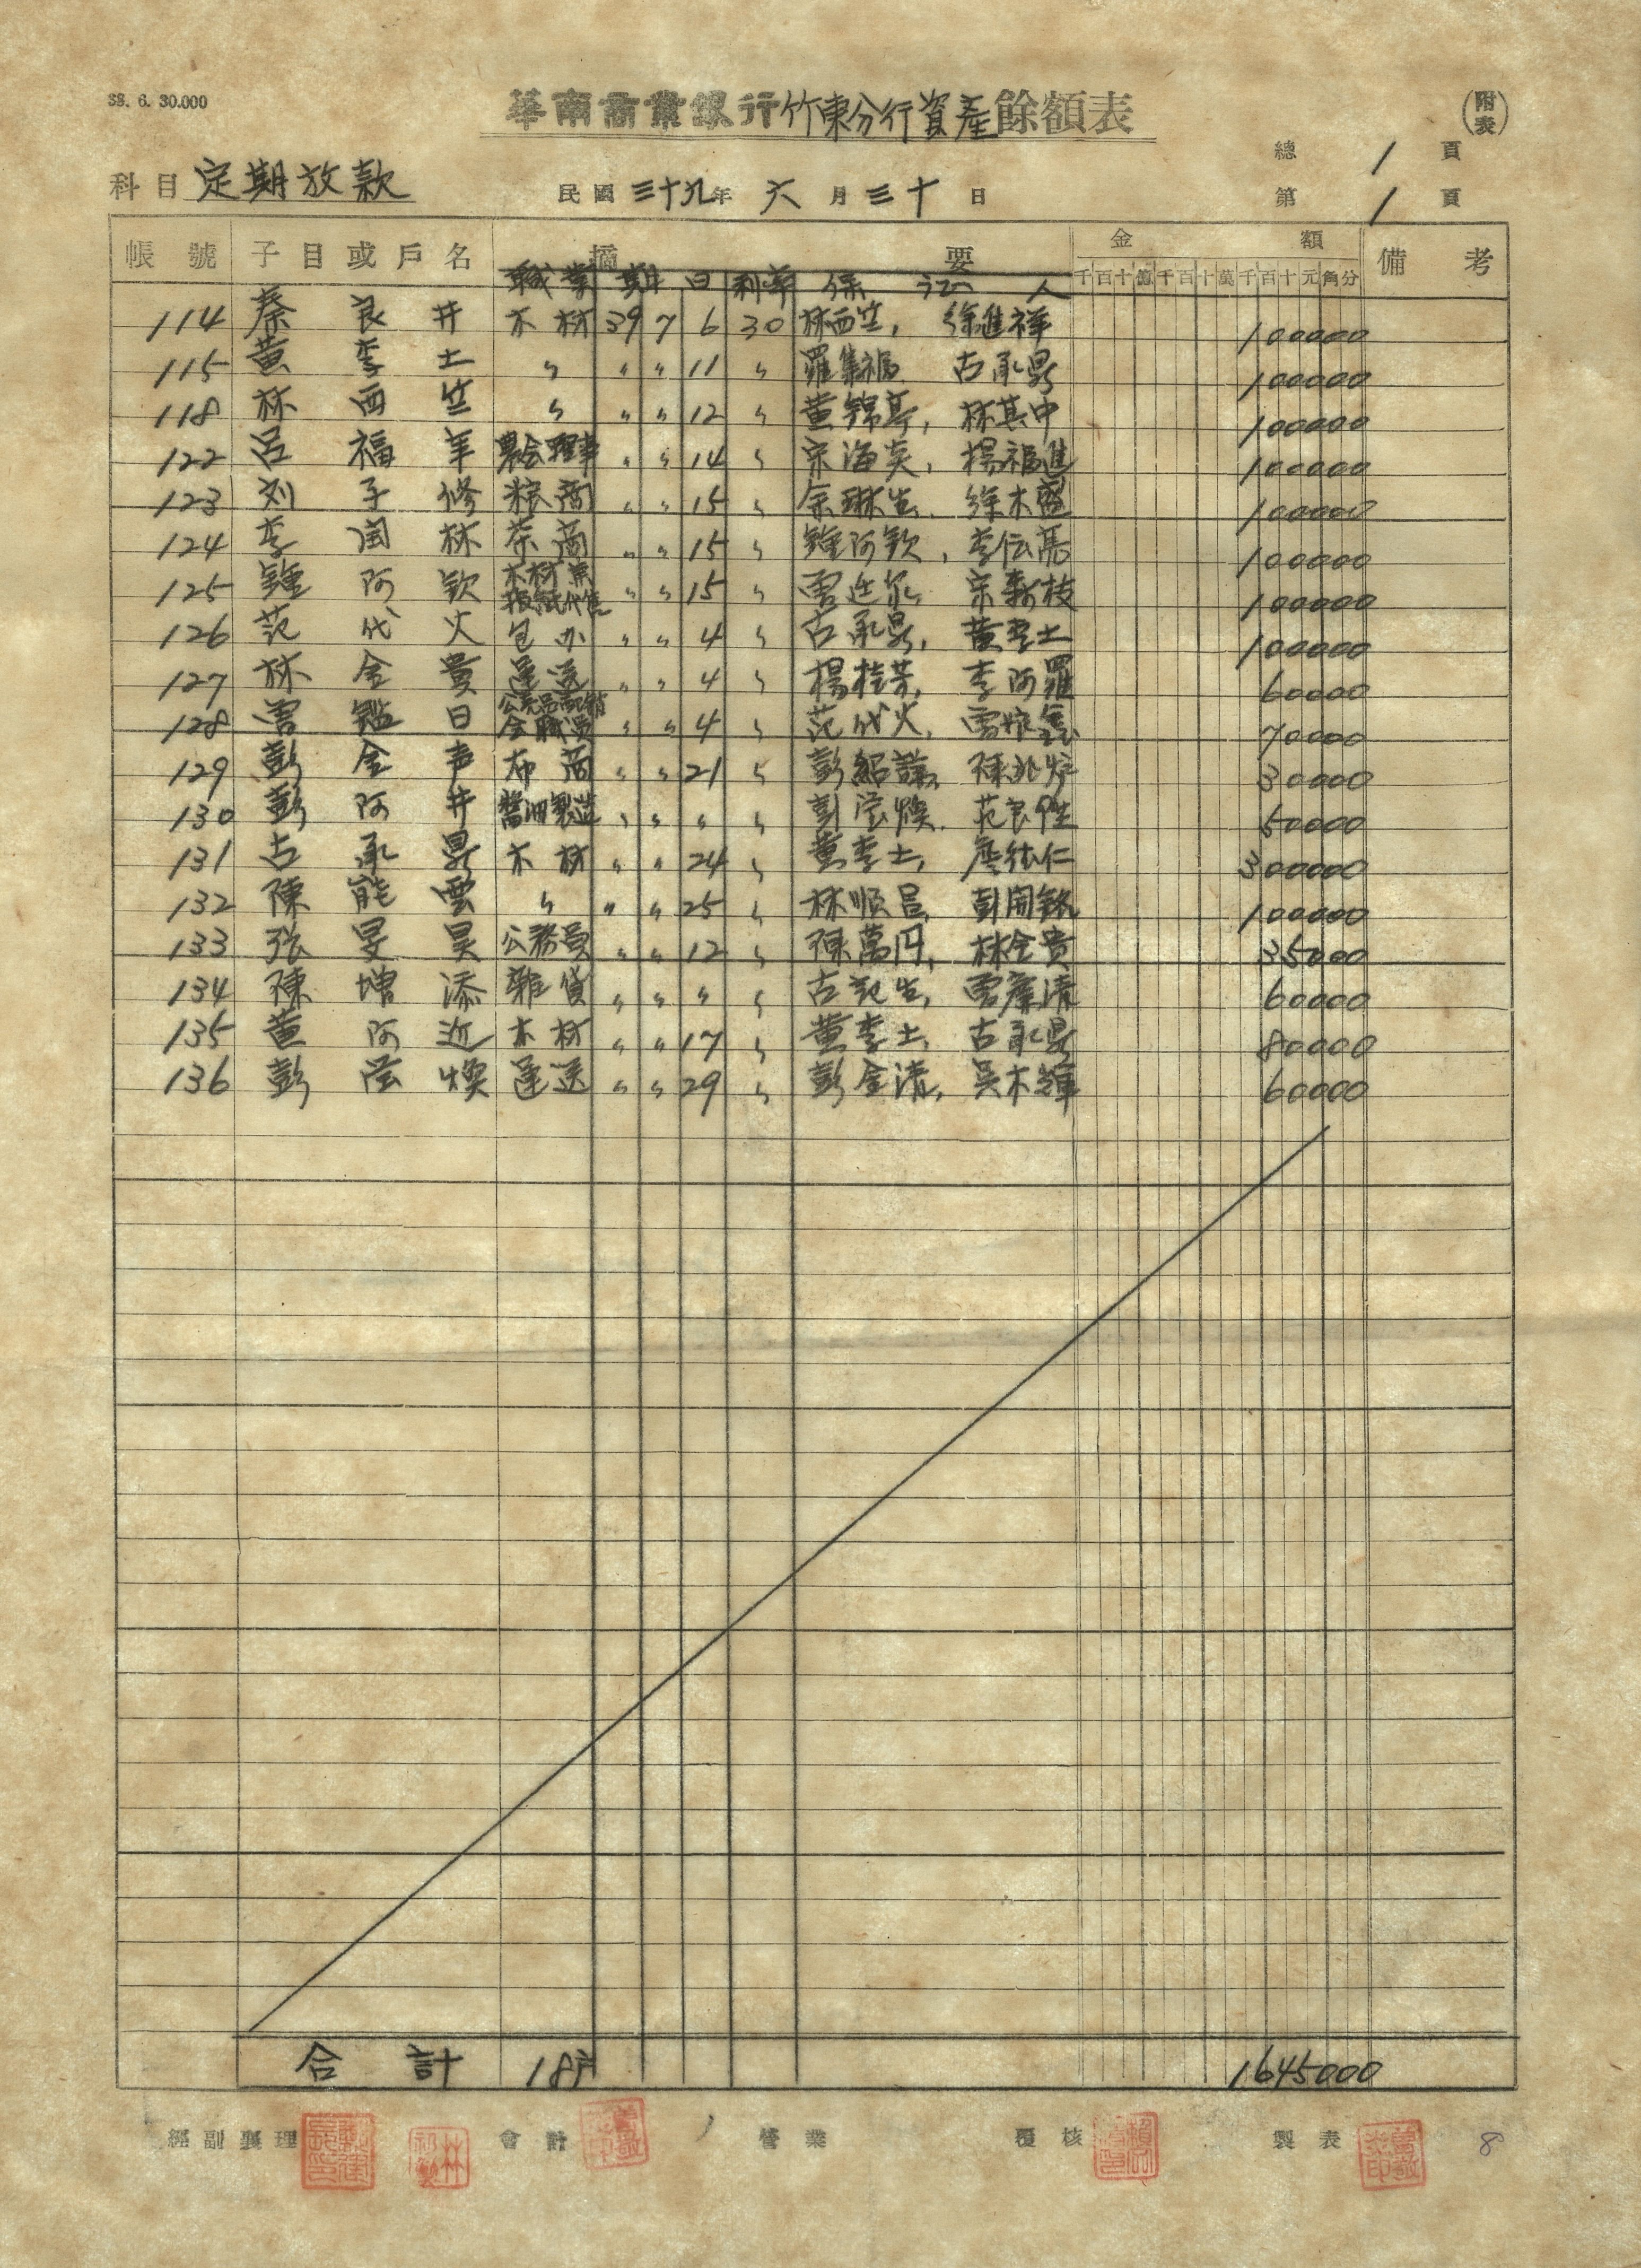 38. 6. 30.000
華南商業銀行竹東分行資產餘額表
(附表)
總 1 頁
科目 定期放款 民國 三十九年 六 月 三十 日 第 1 頁
帳號 子目或戶名 摘要 金額 備考
職業 期日 利率 保証人 千百十億千百十萬千百十元角分
114 蔡良井 木材 39 7 6 30 林西竺, 徐進祥 100000
115 黃李土 〃 〃 〃 11 〃 羅集福 古承鼎 100000
118 林西竺 〃 〃 〃 12 〃 黃錦亭, 林其中 100000
122 呂福羊 農会理事 〃 〃 14 〃 宋海炎, 楊福進 100000
123 刘子修 粮商 〃 〃 15 〃 余琳生, 徐木 100000
124 李閏林 茶商 〃 〃 15 〃 鍾阿欽, 李伝 100000
125 鍾阿欽 木材兼報紙代售 〃 〃 15 〃 宋新枝 100000
126 范代火 包办 〃 〃 4 〃 古承鼎, 黃李土 100000
127 林金貴 運送 〃 〃 4 〃 楊桂芳, 李阿羅 60000
128 曽鑑日 会職員 〃 〃 4 〃 范代火, 70000
129 彭金声 布商 〃 〃 21 〃 彭紹 陳北炉 30000
130 彭阿井 醬油製造 〃 〃 〃 〃 彭滎煥, 范良 50000
131 古承鼎 木材 〃 〃 24 〃 黃李土, 仁 300000
132 陳能雲 〃 〃 〃 25 〃 林順昌, 彭開銘 100000
133 張旻昊 公務員 〃 〃 12 〃 陳萬円, 林金貴 35000
134 陳增添 雜貨 〃 〃 〃 〃 古 生, 曽 清 60000
135 黃阿近 木材 〃 〃 17 〃 黃李土, 古承鼎 80000
136 彭滎煥 運送 〃 〃 29 〃 彭金清, 吳木輝 60000
合計 18戶 1645000
經副襄理 會計 營業 覆核 製表 8